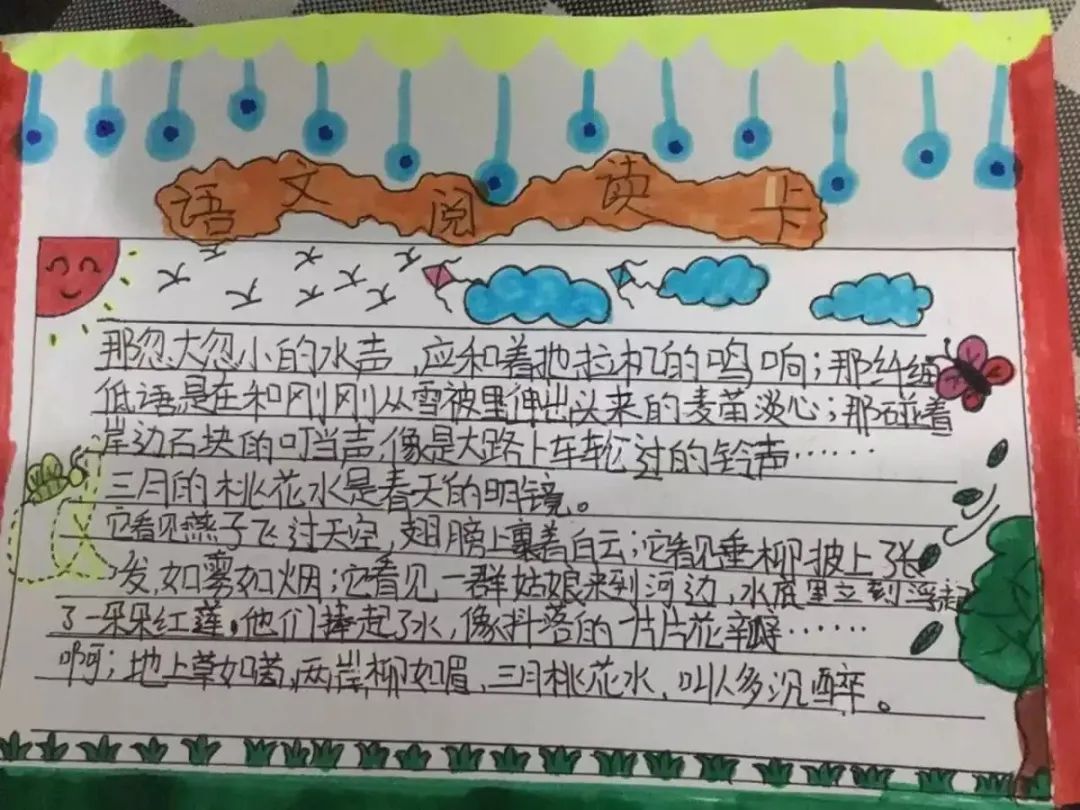 语文阅读卡
那忽大忽小的水声,应和着拖拉机的鸣响;那纤细
低语是在和刚刚从雪被里伸出头来的麦苗淡心;那碰着
岸边石块的叮当声,像是大路上车轮过的铃声……
三月的桃花水是春天的明镜。
它看见燕子飞过天空,翅膀上裹着白云;它看见垂柳披上了张
发,如雾如烟;它看见一群姑娘来到河边,水底里立刻浮起
了一朵朵红莲。他们捧起了水,像抖落的一片片花瓣……
啊;地上草如茵,两岸柳如眉,三月桃花水,叫人多沉醉。